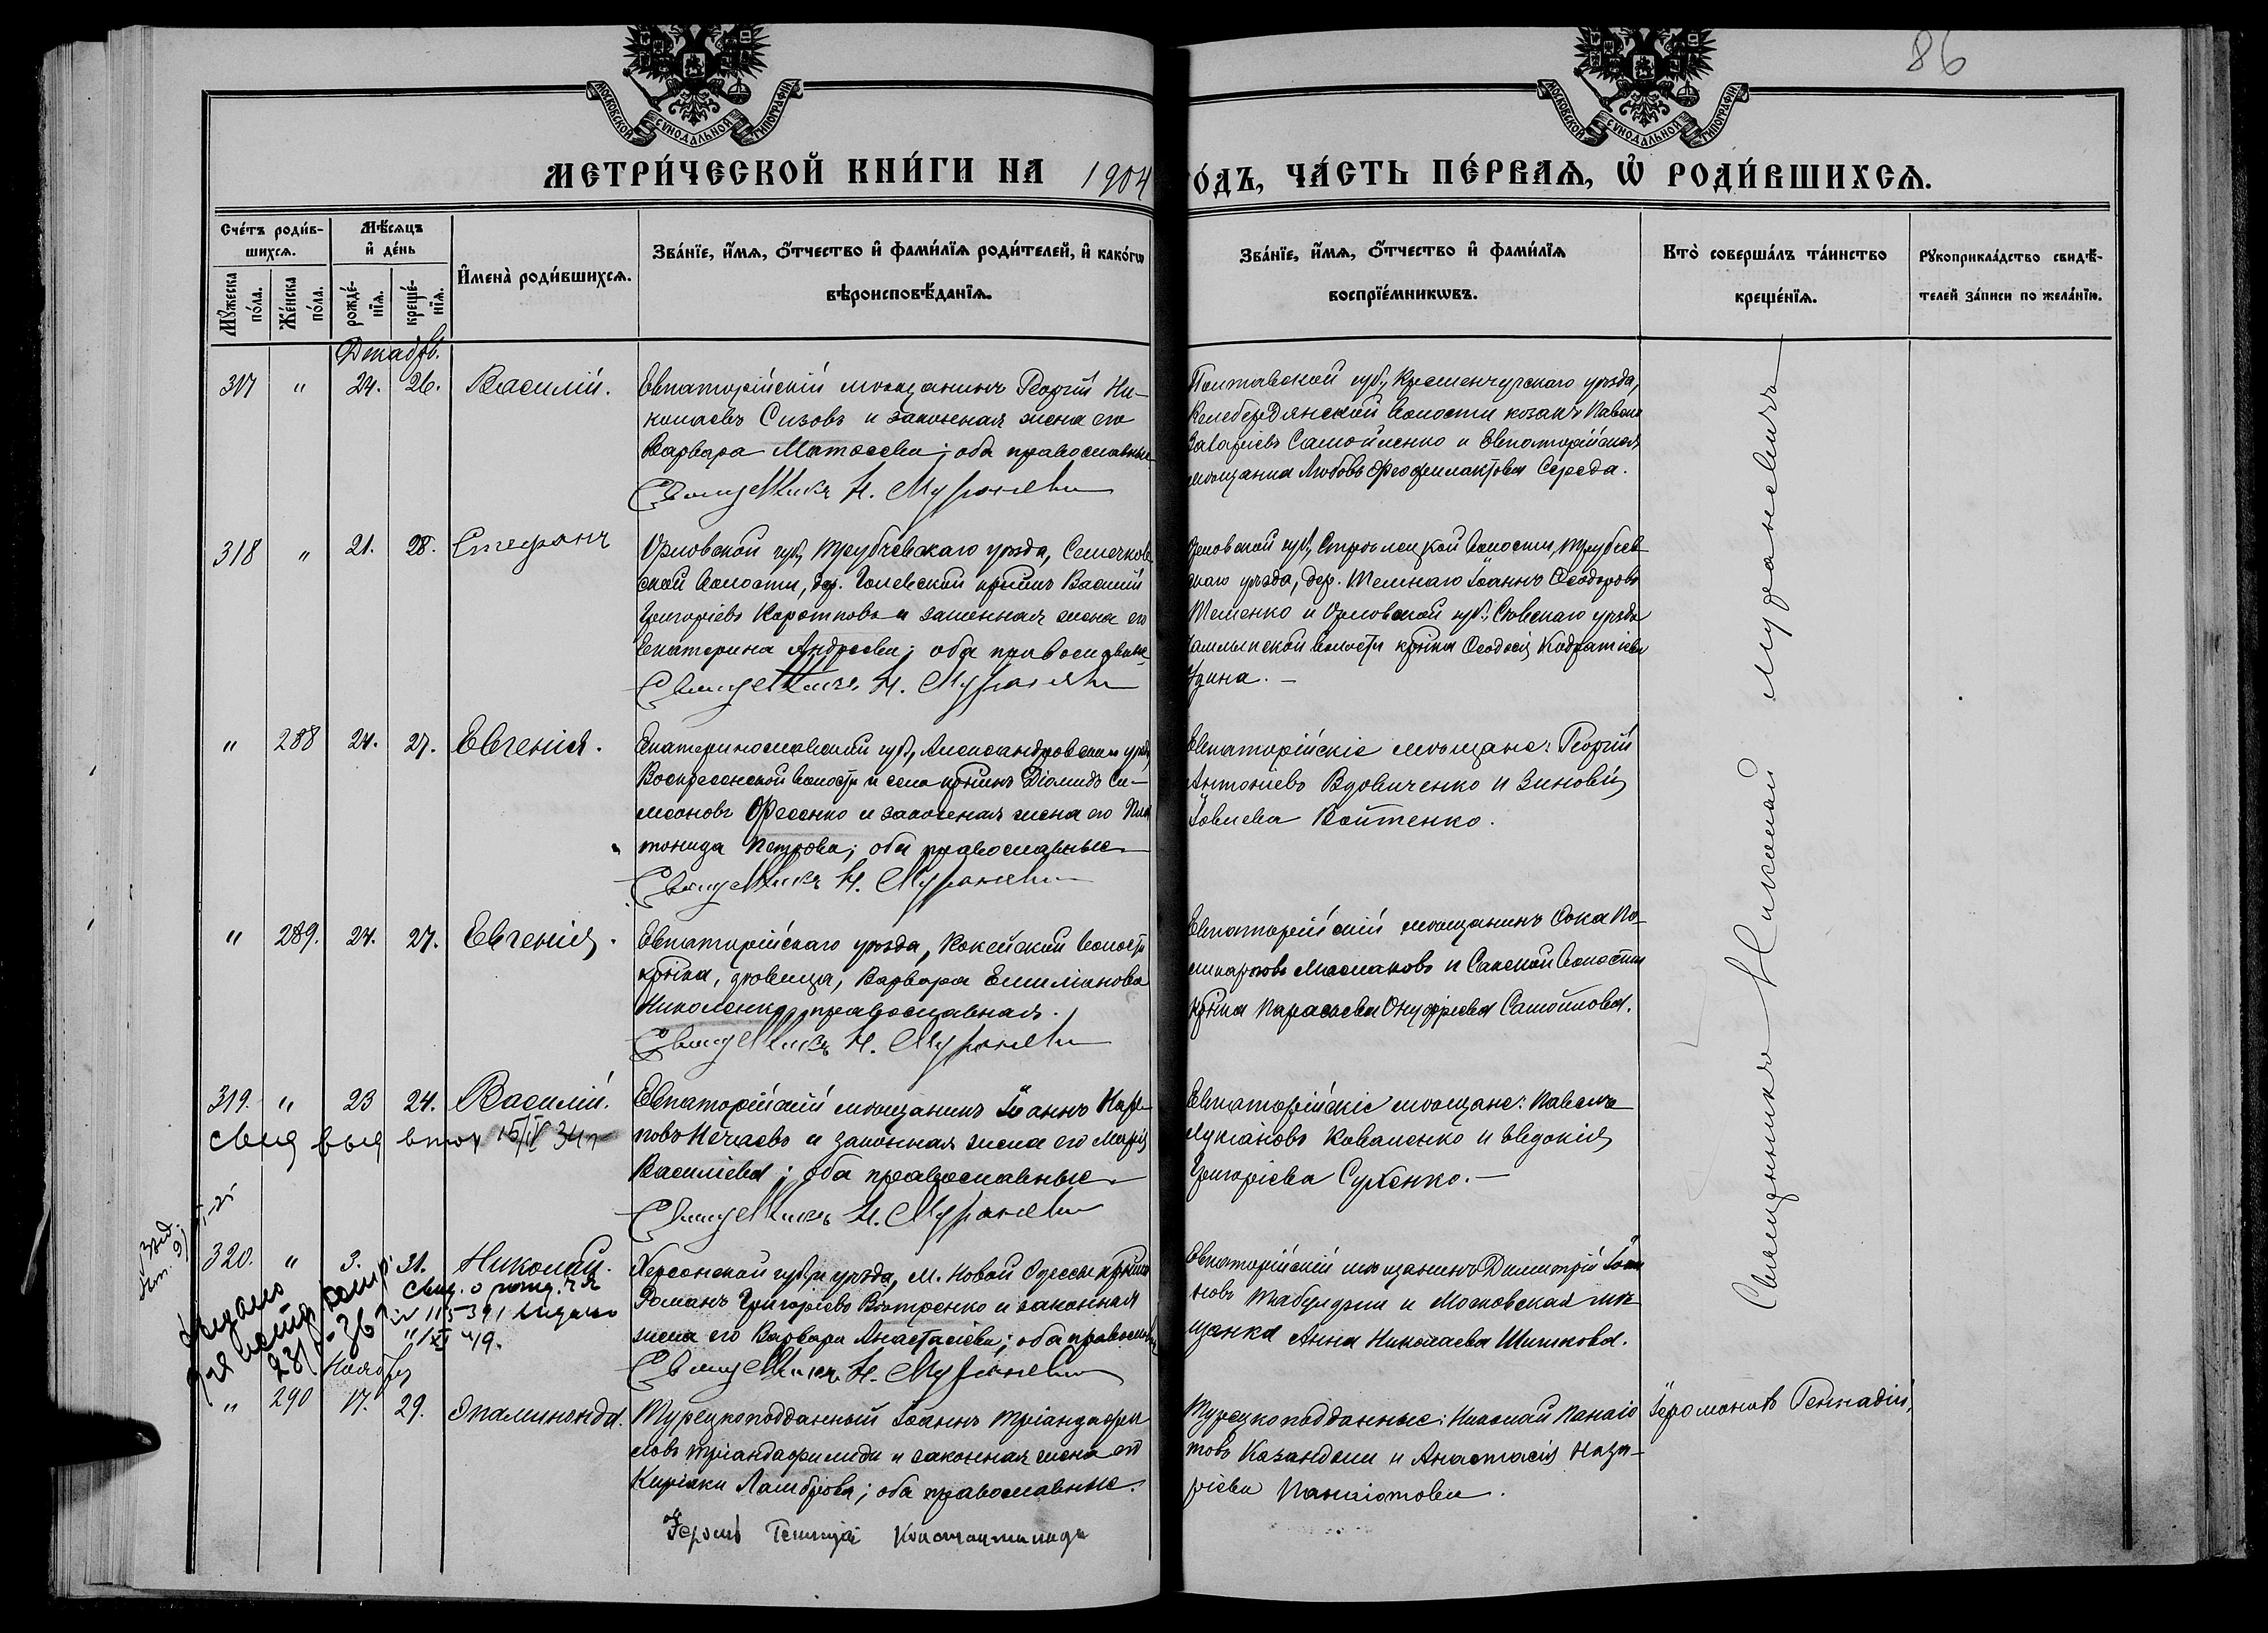 86
МОСКОВСКОЙ СѴНОДАЛЬНОЙ ТИПОГРАФІИ
МОСКОВСКОЙ СѴНОДАЛЬНОЙ ТИПОГРАФІИ
МЕТРИ́ЧЕСКОЙ КНИ́ГИ НА 1904
ГО́ДЪ, ЧА́СТЬ ПЕ́РВАѦ, Ѡ РОДИ́ВШИХСѦ.
Сче́тъ роди́вшихсѧ.
Мꙋ́жеска по́ла.
Же́нска по́ла.
Мѣ́сѧцъ и҆ де́нь
рожде́нїѧ.
креще́нїѧ.
И҆мена̀ роди́вшихсѧ.
Зва́нїе, и҆́мѧ, ѻ҆́тчество и҆ фами́лїѧ роди́телей, и҆ како́гѡ
вѣроисповѣ́данїѧ.
Зва́нїе, и҆́мѧ, ѻ҆́тчество и҆ фами́лїѧ
воспрїе́мникѡвъ.
Кто̀ соверша́лъ та́инство
креще́нїѧ.
Рꙋкоприкла́дство свидѣ́-
телей за́писи по жела́нїю.
Декабрь.
317 " 24. 26. Василій.
Евпаторійскій мѣщанинъ Георгій Ни-
колаевъ Сизовъ и законная жена его
Варвара Матѳеева; оба православные
Священникъ Н. Мураневич
Полтавской губ., Кременчугскаго уѣзда,
Келебердянской волости козакъ Павелъ
Захаріевъ Самойленко и Евпаторійская
мѣщанка Любовь Ѳеофилактова Середа.
318 " 21. 28. Стефанъ
Орловской губ., Трубчевскаго уѣзда, Семячков-
ской волости, дер. Голевской кр-нинъ Василій
Григоріевъ Коротковъ и законная жена его
Екатерина Андреева; оба православные
Священникъ Н. Мураневич
Орловской губ., волости, Трубчев-
скаго уѣзда, дер. Іоаннъ Ѳеодоровъ
и Орловской губ., Сѣвскаго уѣзда
волости кр-нка Ѳеодосія Кодратіева
" 288 24. 27. Евгенія.
Екатеринославской губ., Александровскаго уѣзд.,
Воскресенской волости и села кр-нинъ Діомидъ Си-
меоновъ Ѳесенко и законная жена его Пла-
тонида Петрова; оба православные
Священникъ Н. Мураневич
Евпаторійскіе мѣщане: Георгій
Антоніевъ Вдовиченко и Зиновія
Іовлева Войтенко.
" 289. 24. 27. Евгенія.
Евпаторійскаго уѣзда, волости
кр-нка, вдовица, Варвара Емиліанова
Николенко, православная.
Священникъ Н. Мураневич
Евпаторійскій мѣщанинъ Ѳока По-
ликарповъ Маслаковъ и Сакской волости
кр-нка Параскева Онуфріева Самойлова.
319. " 23 24. Василій.
Евпаторійскій мѣщанинъ Іоаннъ Кар-
повъ Нечаевъ и законная жена его Марія
Василіева; оба православные.
Священникъ Н. Мураневич
15/IV 34 г
Евпаторійскіе мѣщане: Павелъ
Лукіановъ Коваленко и Евдокія
Григоріева Сухенко.
320. " 3. 31. Николай.
Херсонской губ. и уѣзда, м. Новой Одессы кр-нинъ
Романъ Григоріевъ Вѣтренко и законная
жена его Варвара Анастасіева; оба православные
Священникъ Н. Мураневич
Свид. о рожд.
выдано
Евпаторійскій мѣщанинъ Димитрій Іоан-
новъ Табулдзи и Московская мѣ-
щанка Анна Николаева Шишкова.
Священникъ Николай Мураневичъ
Ноябрь
" 290 17. 29. Эпаминонда.
Турецкоподданный Іоаннъ Тріандафил-
ловъ Тріандафилиди и законная жена его
Киріаки Ламброва; оба православные.
Іером. Геннадій
Турецкоподданные: Николай Панаіо-
товъ Казанджи и Анастасія Наза-
ріева Панаіотова.
Іеромонахъ Геннадій.